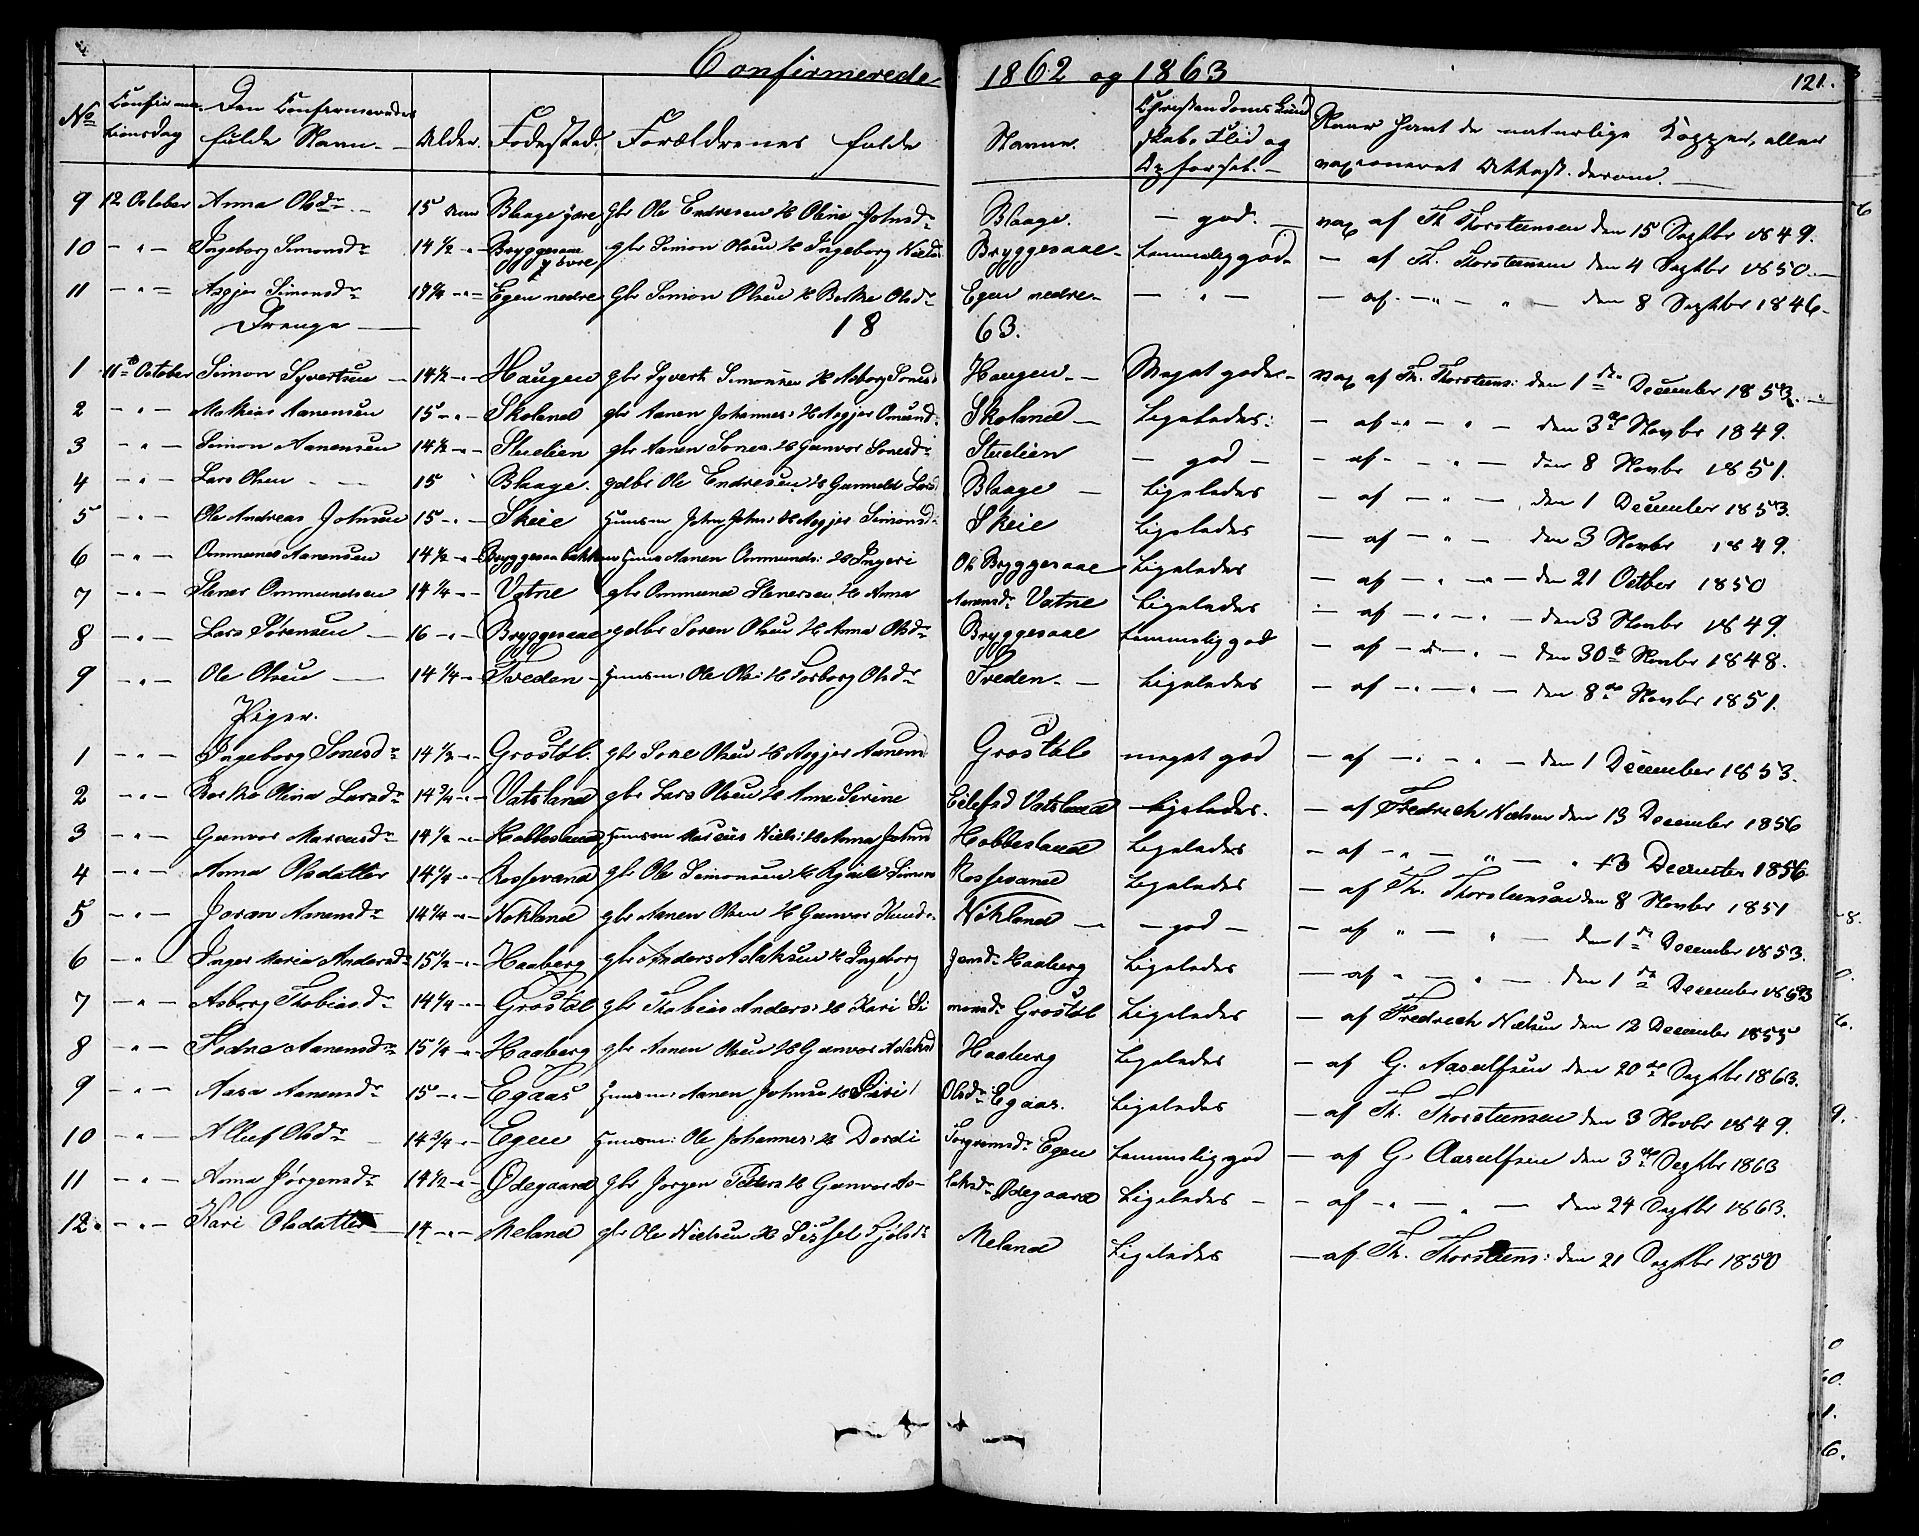 Confirmerede 1862 og 1863 121.
No Confirmationsdag Den Confirmeredes fulde Navn. Alder. Fødested. Forældrenes fulde Navne. Christendoms Kundskab, Flid og Opførsel. Naar havt de naturlige Kopper, eller vaxioneret Attest. derom.
9 12 October Anna Olsdr 15 Aar Blaage ydre gbr Ole Endresen & Oline Johnsdr Blaage. god. vax af Th Thorstensen den 15 Septbr 1849.
10 - " - Ingeborg Simonsdr 14½ - " - Bryggesaae øvre gbr Simon Olsen & Ingeborg Nielsd Bryggesaae - temmelig god - af Th. Thorstensen den 4 Septbr 1850.
11 - " - Asgjer Simonsdr Egen nedre Gbr Simon Olsen & Berthe Olsdr Egen nedre - " - - af - " - " - den 8 Septbr 1846.
Drenge 1863.
1 11te October Simon Syvertsen 14½ - " - Haugen gbr Syvert Simonsen & Asborg Tonesd Haugen Meget goder - vax af Th. Thorstens: den 1ste December 1853.
2 - " - Mathias Aanensen 15 - " - Skoland gbr Aanen Johannes: & Asgjer Omund: Skoland Ligeledes: - af - " - " - den 3de Novbr 1849.
3 - " - Simon Aanensen 14½ - " - Studlien gbr Aanen Tones: & Gunvor Tonesd: Studlien - god - - af - - " - den 8 Novbr 1851.
4 - " - Lars Olsen 15 Blaage. gdbr Ole Endresen & Gunnild Larsd Blaage Ligeledes - af - " - den 1 December 1853.
5 - " - Ole Andreas Johnsen 15 - " - Skeie Huusm John Johns: & Asgjer Simonsd: Skeie Ligeledes - af - " - den 3 Novbr 1849.
6 - " - Ommund Aanensen 14½ - " - Bryggesaabakken Huus Aanen Ommunds: & Ingeri Ol Bryggesaae Ligeledes - af - " - " - den 21 Octbr 1850
7 - " - Stener Ommundsen 14¼ - " - Vatne gbr Ommund Stenersen & Anna Aanensdr Vatne Ligeledes - af - " - " - den 3 Novbr 1849.
8 - " - Lars Sørensen 16 - " - Bryggesaae gdbr Søren Olsen & Anna Olsdr Bryggesaae temmelig god - af - " - den 30te Novbr 1848.
9 - " - Ole Olsen 14¼ - Tveden - Huusm: Ole Ols: & Torborg Olsdr Tveden. Ligeledes - af - " - " - den 8de Novbr 1851.
Piger.
1 - " - Ingeborg Tonesdr 14½ - " - Grostøl. gbr Tone Olsen & Asgjer Aanensd Grostøl meget god - af - " - " - den 1 December 1853.
2 - " - Berthe Olina Larsdr 14¾ - " - Vatsland gbr Lars Olsen & Ane Serine Eilefsd Vatsland Ligeledes. - af Fredrich Nielsen den 13 December 1856
3 - " - Gunvor Marcusdr 14½ - " - Hobbesland Huusm Marcus Niels: & Anna Johnsd Hobbesland Ligeledes - af - " - " - " 13 December 1856
4 - " - Anna Olsdatter 14¼ - " - Rossevand gbr Ole Simonsen & Simons Rossevand Ligeledes - af Th. Thorstensen den 8 Novbr 1851
5 - " - Joran Aanensdr 14¼ - " - Nokland gbr Aanen Olsen & Gunvor Knuds. Nokland - god - - af " - " - den 1ste December 1853.
6 - " Inger Maria Andersdr 15½ - " - Haaberg gbr Anders Aslaksen & Ingeborg Jensdr Haaberg Ligeledes - af " - " - den 1ste December
7 - " - Asborg Thobiasdr 14¼ - " - Grostøl gbr Thobias Anders: & Kari Simonsdr Grostøl Ligeledes - af Fredrich Nielsen den 12 December 1855
8 - " - Aanensdr 15¼ - " - Haaberg gbr Aanen Olsen & Gunvor Aslaksd Haaberg Ligeledes - af G. Aasulfsen den 20de Septbr 1863.
9 - " - Aasa Aanensdr 15 - " - Egaas Huusm: Aanen Johnsen & Siri Olsdr: Egaas. Ligeledes - af Th. Thorstensen den 3 Novbr 1849.
10 - " - Allef Olsdr 14¾ - " - Egen Huusm: Ole Johannes: & Dordi Torgrimsdr Egen temmelig god - af G. Aasulfsen den 3de Septbr 1863
11 - " - Anna Jørgensdr 14½ - " - Ødegaard gbr Jørgen Peders & Gunvor As- laksdr Ødegaard Ligeledes - - af - " - " - den 24 Septbr 1863.
12. - " - Kari Olsdatter 14 - " - Meland gbr Ole Nielsen & Sissel Meland Ligeledes - af Th. Thorstens: den 21 Septbr 1850